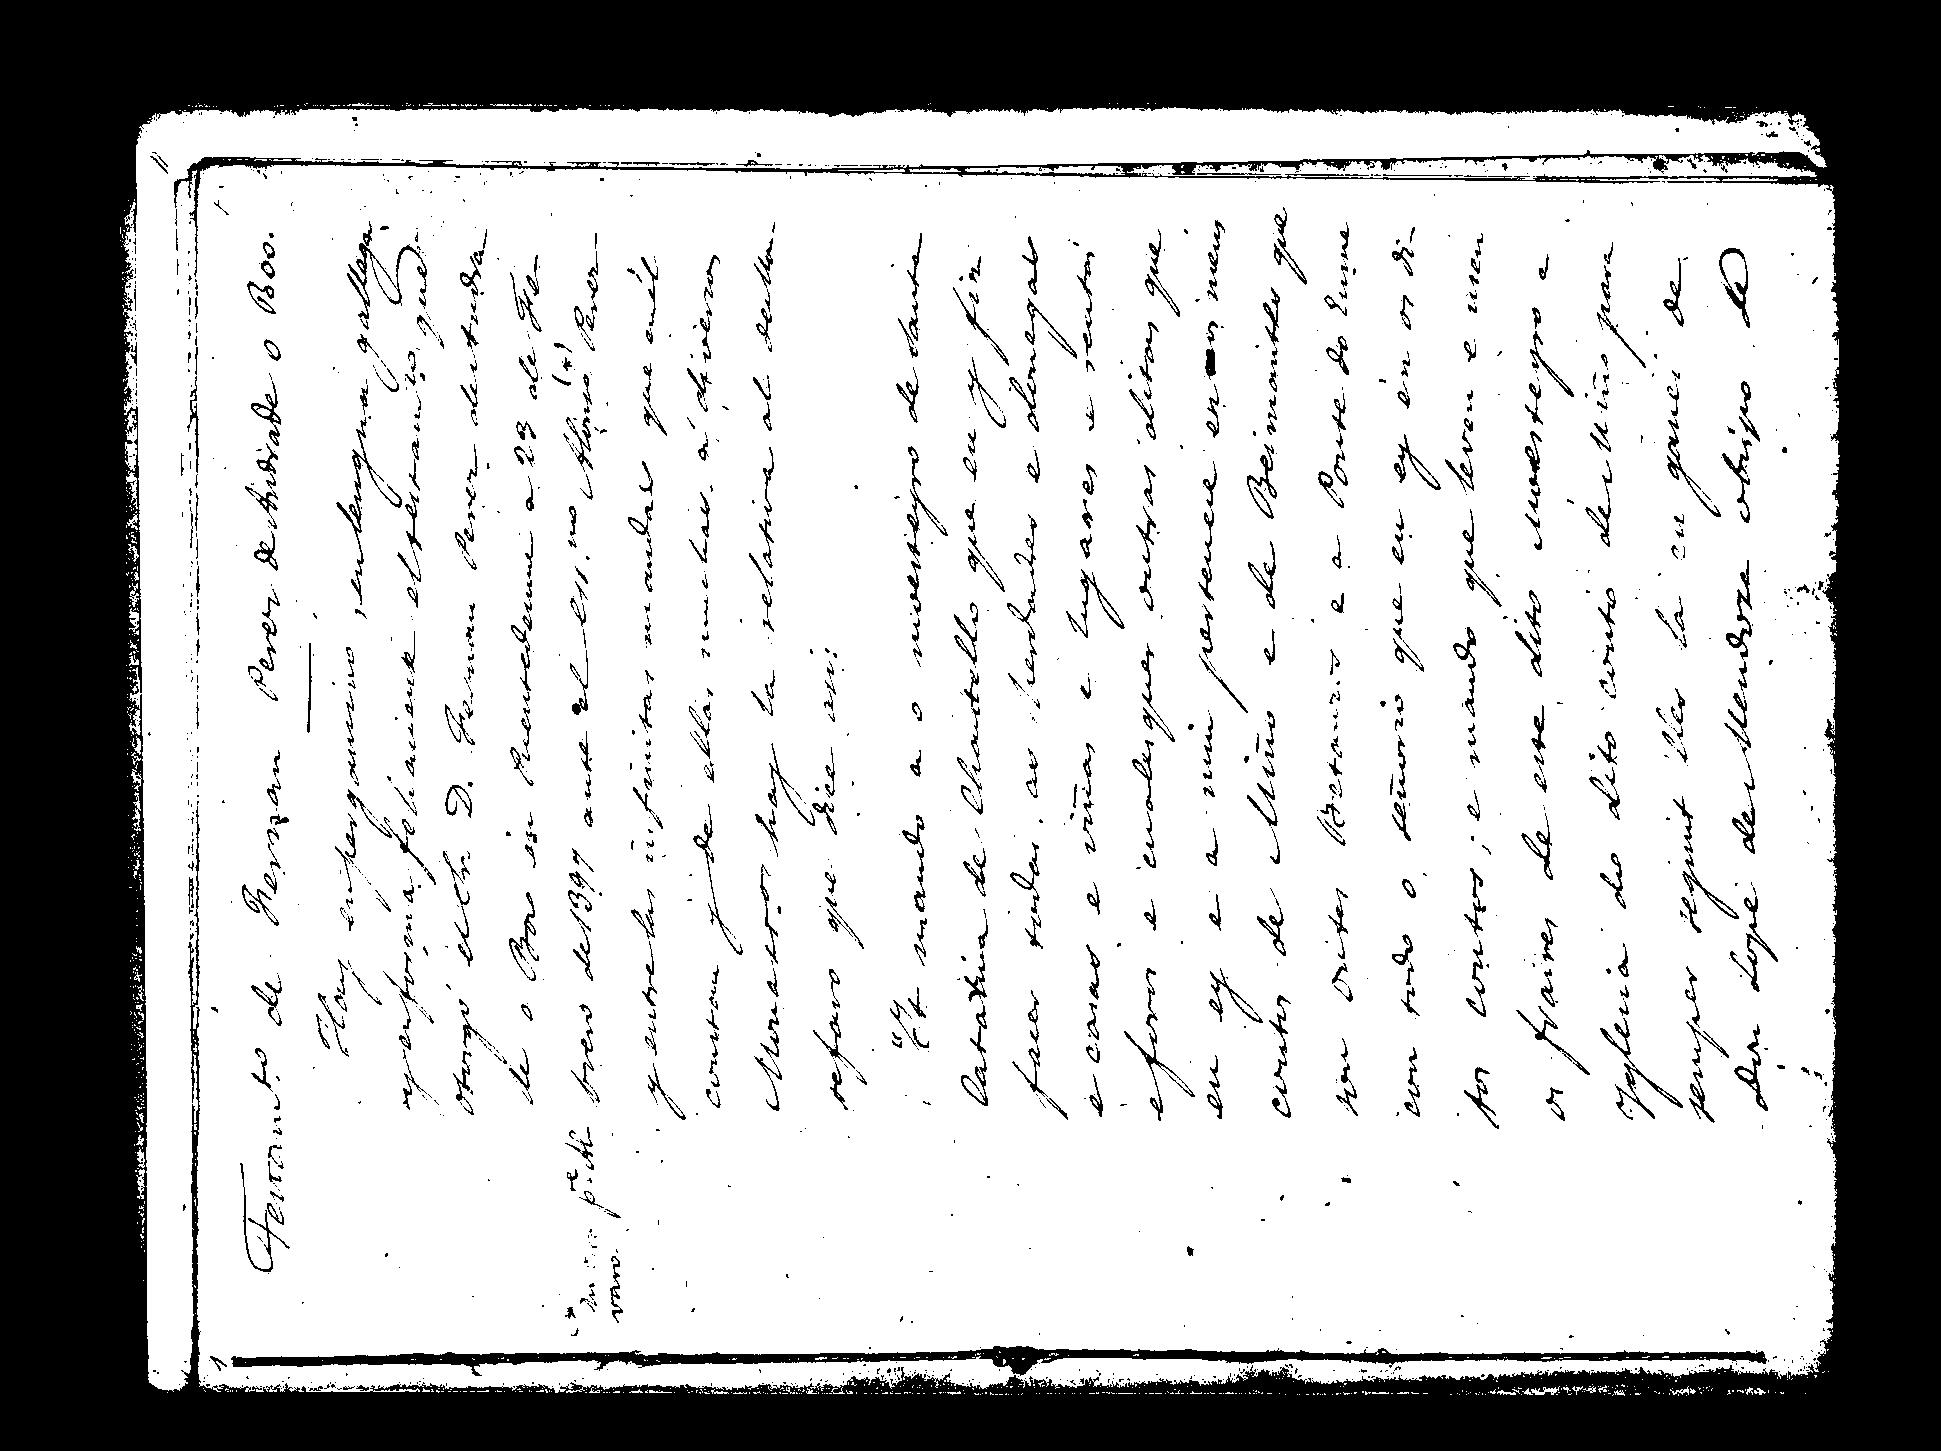 Testam.to de Fernan Perez de Andrade o Boo.
Hay en pergamino, en lengua gallega,
y en forma fehaciente el testam.to que
otorgó el Sr. D. Fernan Perez de Andra
de o Boo en Puentedeume a 23 de Fe-
brero de 1397 ante el ess.no Alonso (*) Perez
y entre las infinitas mandas que en él
constan y de ellas muchas a diversos
Monast.os hay la relativa al de Mon-
tefaro que dice asi:
"Et mando a o moesteyro de Santa
Catarina de Chantello que eu y fiz
facer todas as herdades e domegas
e casas e viñas e lugares e rentas
e foros e cualesquer outras ditas que
eu ey e a min pertenece en os meus
coutos de Miño e de Beimantes que
son ontes Betanzos e a Ponte do Eume
con todo o señorio que eu ey en os di-
tos coutos; e mando que leven e usen
os fraires de ese dito moesteyro e
Yglesia do dito couto de Miño para
semper segunt les la eu gané de
don Lope de Mendoza obispo de
(* En otra p.te Al
varo.